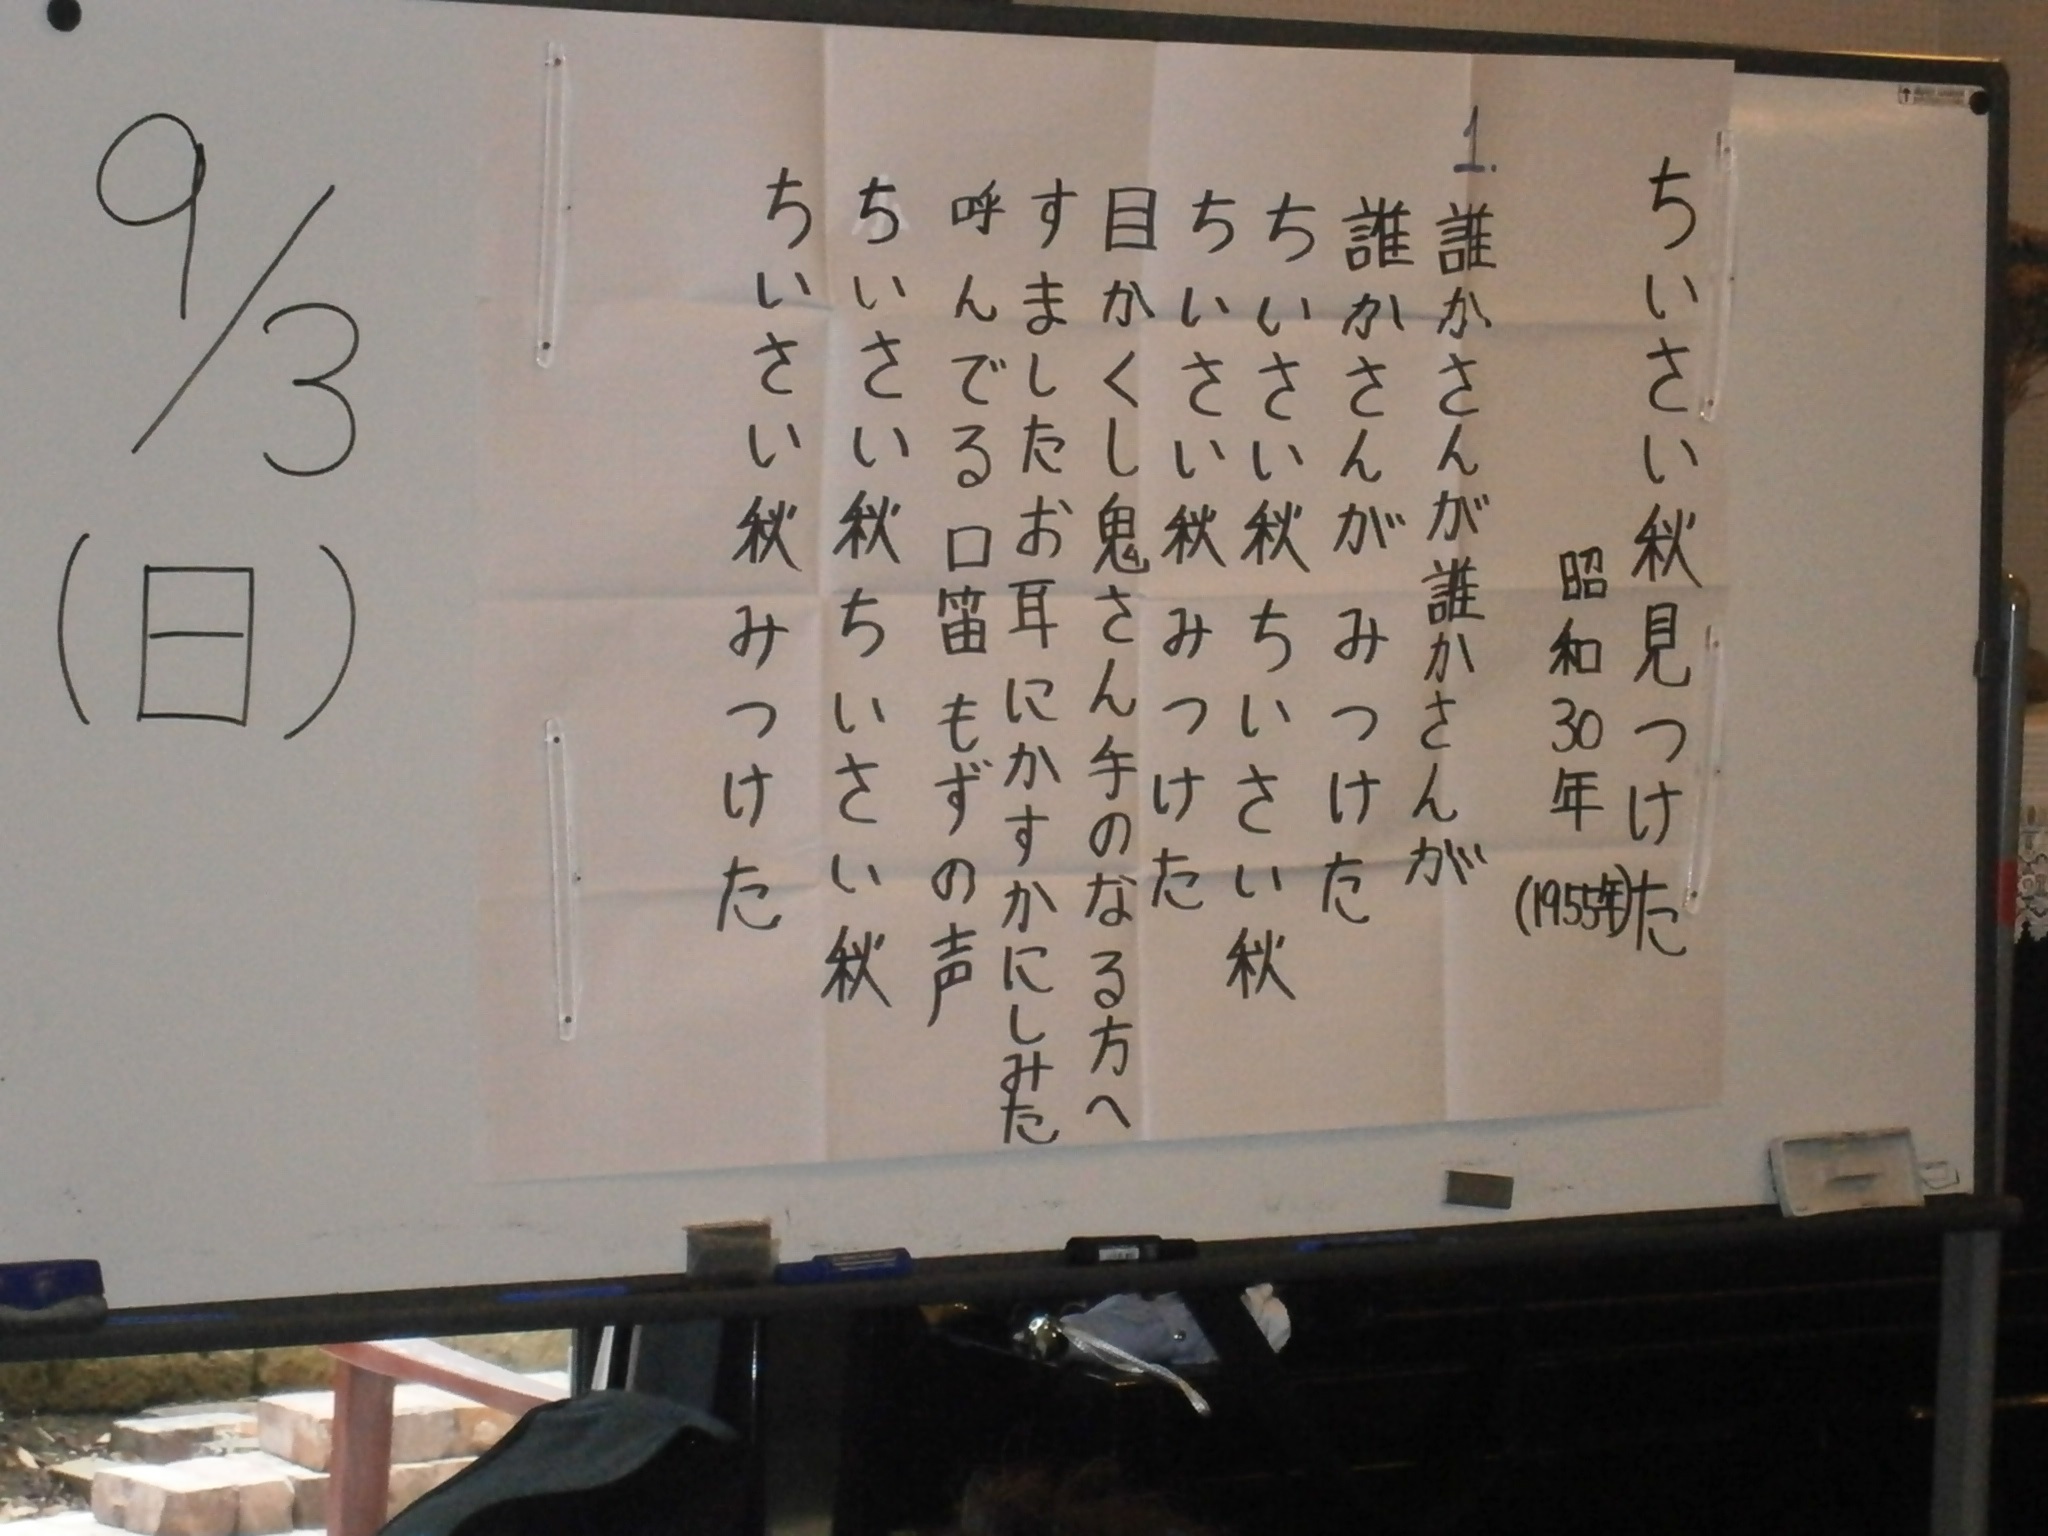 9/3
(日)
ちいさい秋見つけた
昭和30年(1955年)
1.
誰かさんが誰かさんが
誰かさんがみつけた
ちいさい秋ちいさい秋
ちいさい秋みつけた
目かくし鬼さん手のなる方へ
すましたお耳にかすかにしみた
呼んでる口笛もずの声
ちいさい秋ちいさい秋
ちいさい秋みつけた